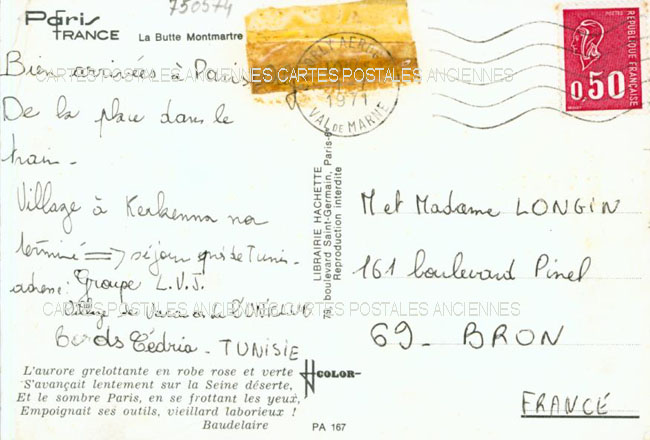 750574
Paris
FRANCE
La Butte Montmartre
Bien arrivées à Paris
De la place dans le
train -
Village à Kerkenna non
terminé => séjour près de Tunis -
adresse: Groupe L.V.J.
Village de
Bordj Cédria - TUNISIE
L'aurore grelottante en robe rose et verte
S'avançait lentement sur la Seine déserte,
Et le sombre Paris, en se frottant les yeux,
Empoignait ses outils, vieillard laborieux !
Baudelaire
COLOR-
PA 167
LIBRAIRIE HACHETTE
79, boulevard Saint-Germain, Paris-6
Reproduction interdite
1971
VAL DE MARNE
POSTES
REPUBLIQUE FRANÇAISE
0,50
M et Madame LONGIN
161 boulevard Pinel
69 - BRON
FRANCE
CARTES POSTALES ANCIENNES CARTES POSTALES ANCIENNES
CARTES POSTALES ANCIENNES CARTES POSTALES ANCIENNES